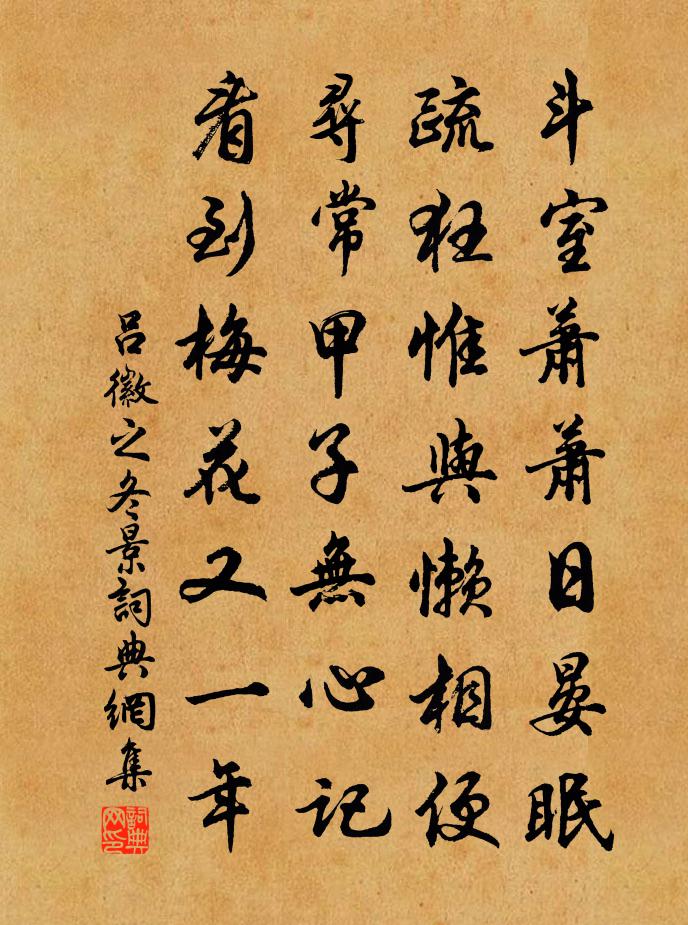 斗室萧萧日晏眠
疏狂惟與懒相便
尋常甲子無心记
看到梅花又一年
吕徽之冬景詞典網集
詞典网印